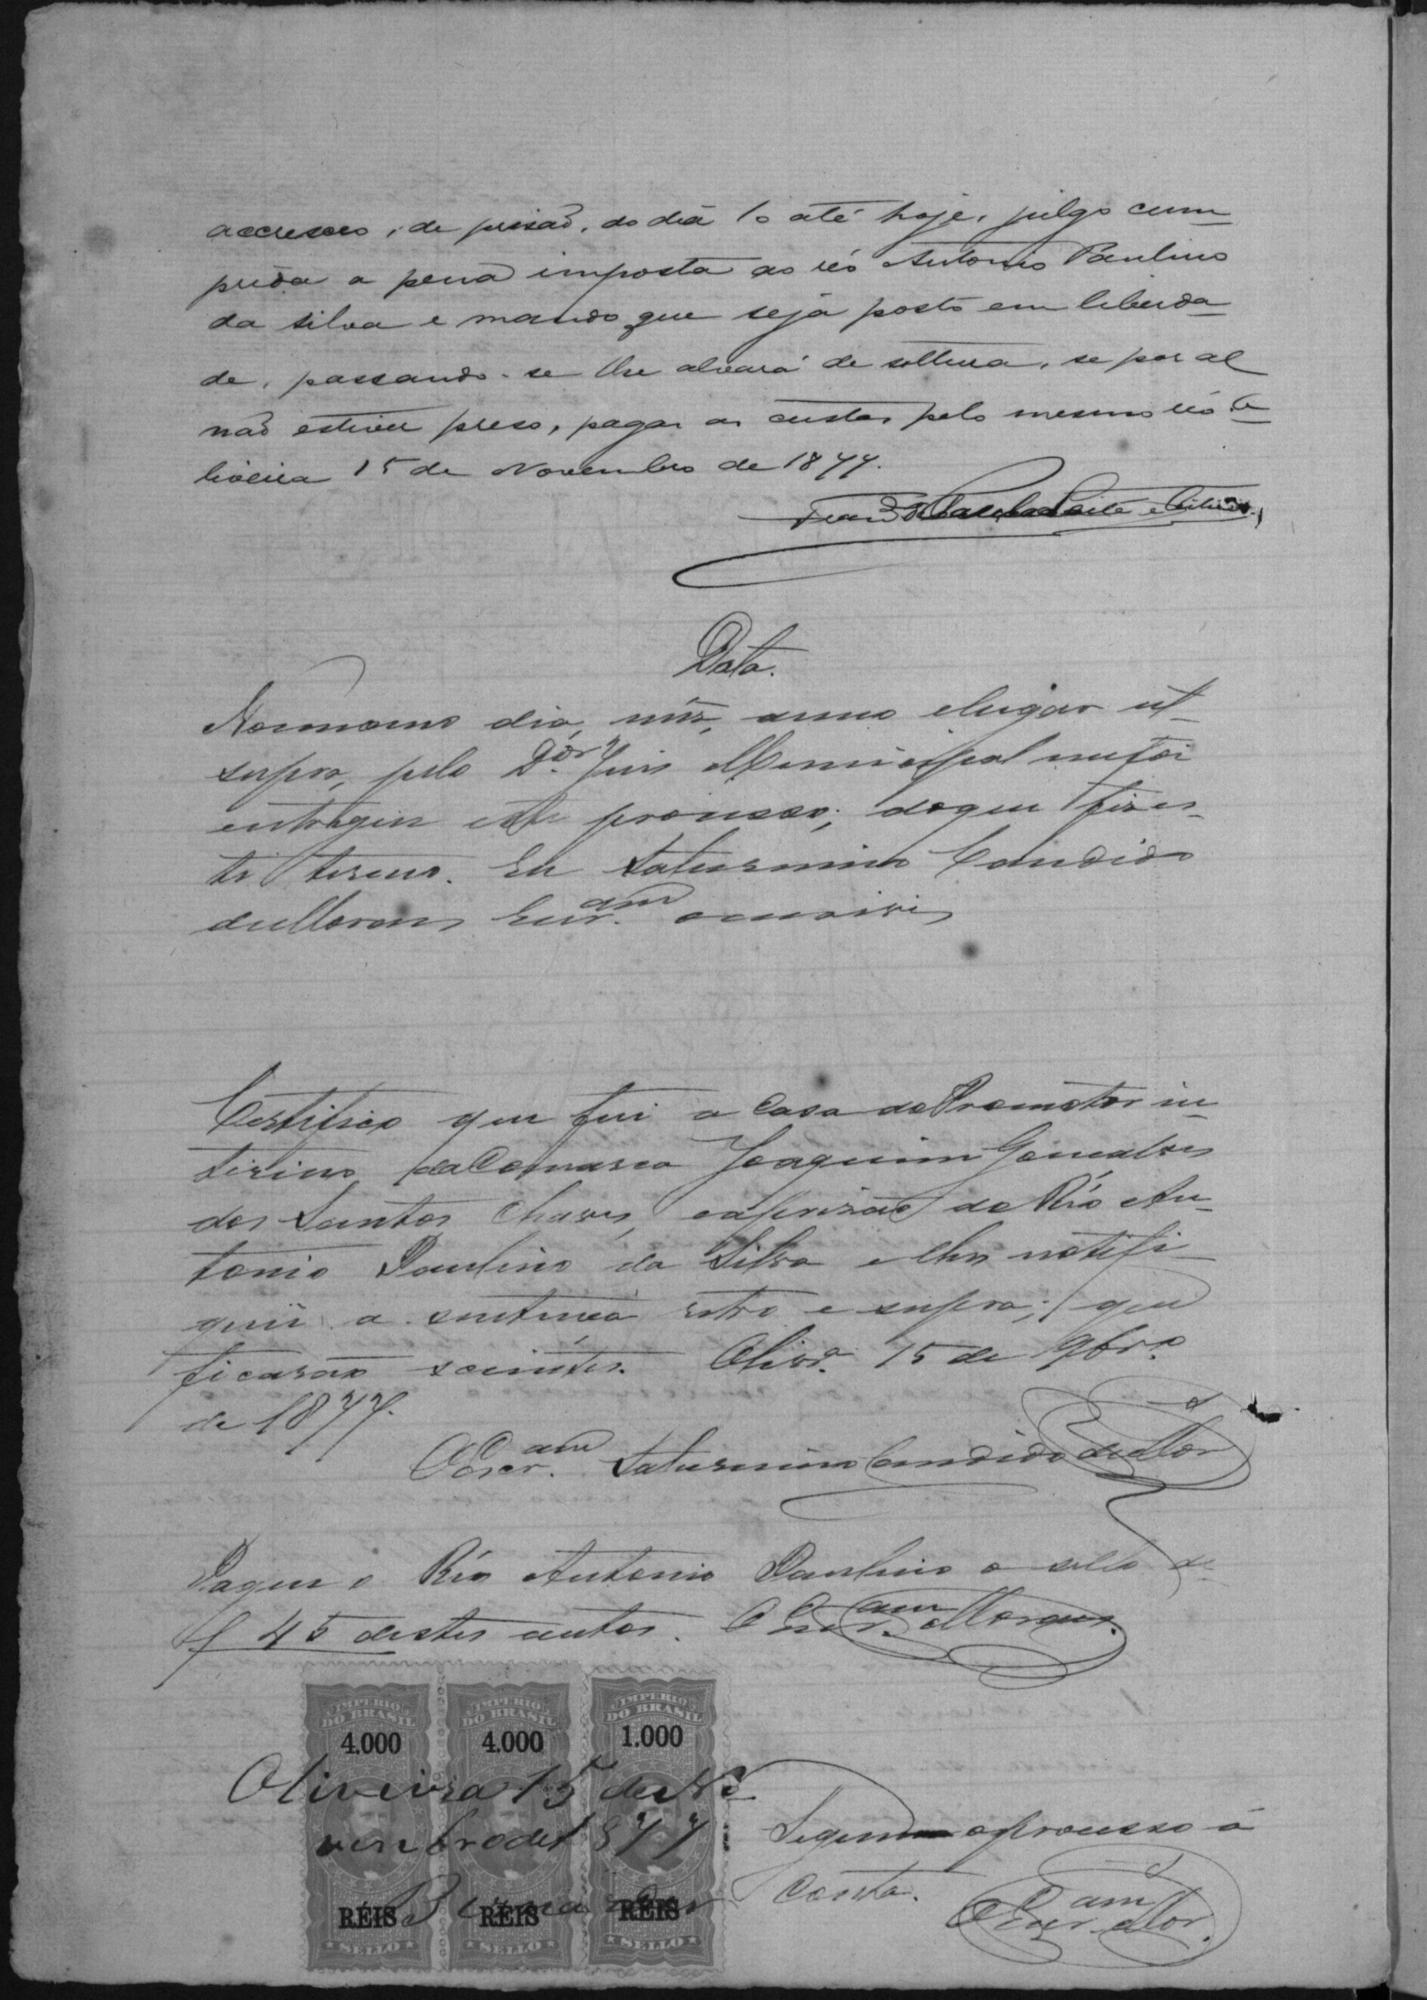 accresceo, de prisão, do dia 10 até hoje, julgo cum-
prida a pena imposta ao réo Antonio Paulino
da Silva e mando que seja posto em liberda-
de, passando-se lhe alvará de soltura, se por al
não estiver preso, pagas as custas pelo mesmo réo O-
liveira 15 de Novembro de 1877.
Franco de Paula Leite e Oiticica
Data.
No mesmo dia, mês, anno e lugar ut-
supra, pelo Dor. Juis Municipal me foi
entregue este processo; do que fiz es-
te termo. Eu Saturnino Candido
de Moraes Escram escrevi
Certifico que fui a Casa do Promotor in-
terino da Comarca Joaquim Gonçalves
dos Santos Chaves, e a prizão do Réo An-
tonio Paulino da Silva e lhes notifi-
quei a sentença retro e supra; que
ficarão scientes. Olivra. 15 de 9bro.
de 1877.
O Escram. Saturnino Candido de Mor
Pague o Réo Antonio Paulino o sello de
f 45 destes autos. O Escram. Moraes.
IMPERIO DO BRASIL IMPERIO DO BRASIL IMPERIO DO BRASIL
4.000 4.000 1.000
Oliveira 15 de No
vembro de 1877
RÉIS RÉIS RÉIS
SELLO SELLO SELLO
Segue o processo á
Conta.
O Escram. Mor.